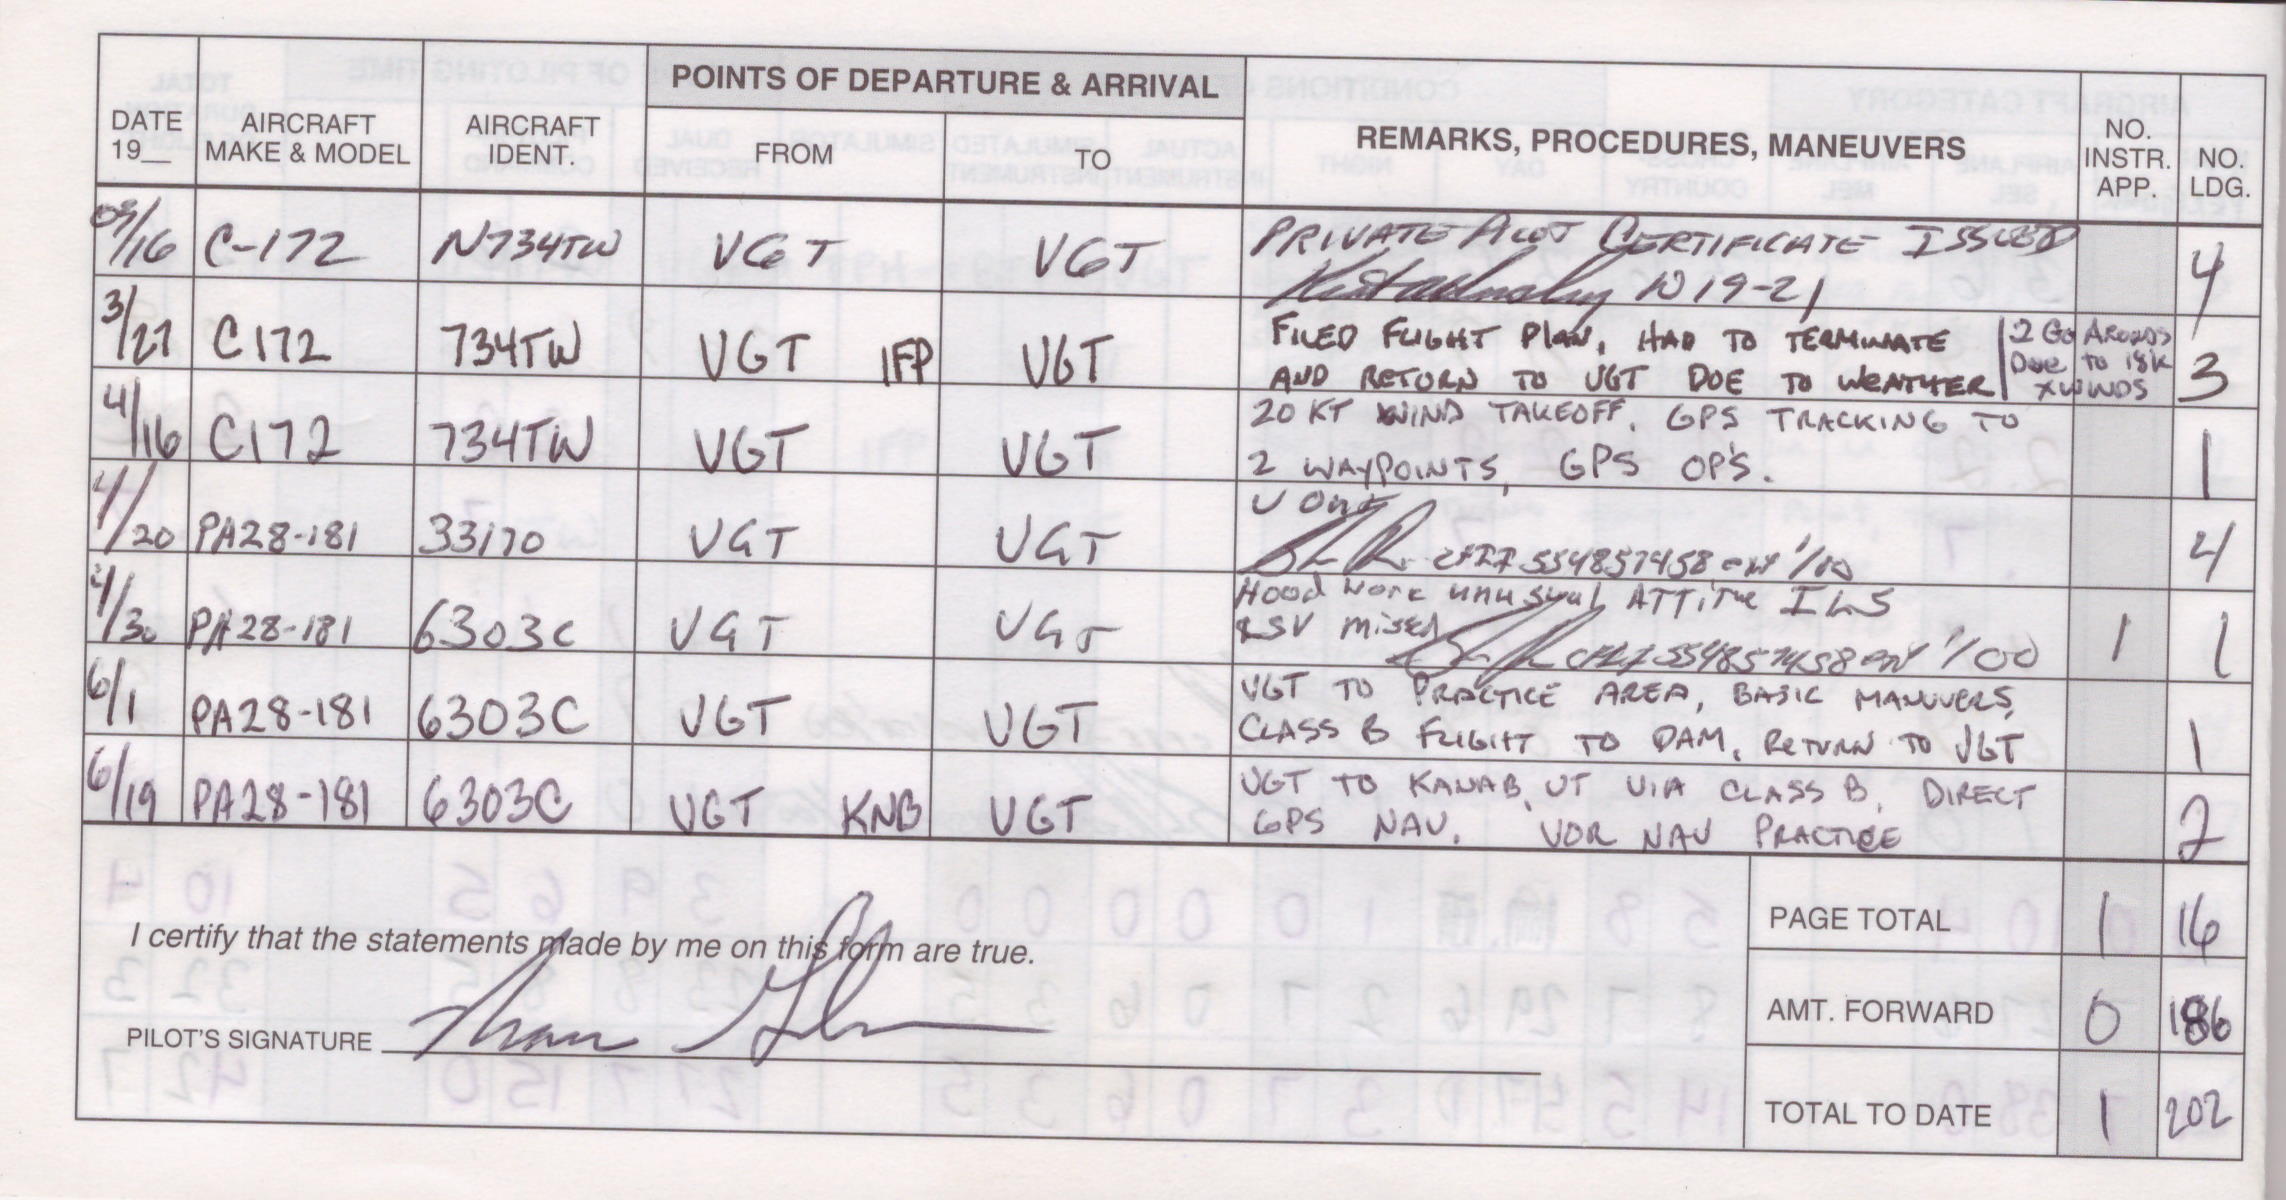 POINTS OF DEPARTURE & ARRIVAL
DATE 19__ AIRCRAFT MAKE & MODEL AIRCRAFT IDENT. FROM TO REMARKS, PROCEDURES, MANEUVERS NO. INSTR. APP. NO. LDG.
03/16 C-172 N734TW VGT VGT PRIVATE PILOT CERTIFICATE ISSUED 4
W 19-21
3/27 C172 734TW VGT IFP VGT FILED FLIGHT PLAN, HAD TO TERMINATE 2 GO AROUNDS 3
AND RETURN TO VGT DUE TO WEATHER DUE TO 18K
XWINDS
4/16 C172 734TW VGT VGT 20 KT WIND TAKEOFF, GPS TRACKING TO 1
2 WAYPOINTS, GPS OP'S.
4/20 PA28-181 33170 VGT VGT 4
CFII 554857458 exp 1/00
4/30 PA28-181 6303C VGT VGT Hood work unusual ATTiTue ILS 1 1
missed CFII 554857458 exp 1/00
6/1 PA28-181 6303C VGT VGT VGT TO PRACTICE AREA, BASIC MANUVERS, 1
CLASS B FLIGHT TO DAM, RETURN TO VGT
6/19 PA28-181 6303C VGT KNB VGT VGT TO KANAB, UT VIA CLASS B, DIRECT 2
GPS NAV. VOR NAV PRACTICE
I certify that the statements made by me on this form are true.
PILOT'S SIGNATURE
PAGE TOTAL 1 16
AMT. FORWARD 0 186
TOTAL TO DATE 1 202